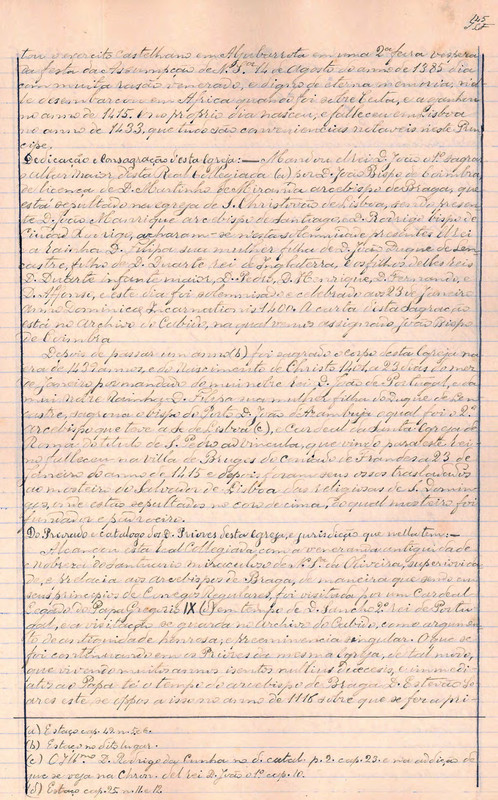 145
tou o exercito Castelhano em Aljubarrota em uma 2ª feira vespera
da festa da Assumpção de N. Sr.ª 14 de Agosto do anno de 1385 dia
com muita rasão venerado, e digno de eterna memoria, n'el-
le desembarcou em Africa quando foi sobre Ceuta, e a ganhou
no anno de 1415. E no proprio dia nasceu, e falleceu em Lisboa
no anno de 1433, que tudo são conveniencias notaveis neste Prin-
cipe.
Dedicação e Consagração d'esta Igreja: — Mandou el rei D. João o 1º sagrar
o altar maior, desta Real Collegiada (a) por D. João Bispo de Coimbra
de licença de D. Martinho de Miranda arcebispo de Braga, que
está sepultado na egreja de S. Christovão de Lisboa, sendo presente
D. João Manrique arcebispo de Santiago, e D. Rodrigo bispo de
Ciudad Rodrigo, acharam-se nesta solemnidade presentes el rei
e a rainha D. Filipa sua mulher filha de D. João Duque de Len-
castre, filho de D. Duarte rei de Inglaterra, e os filhos delles reis
D. Duarte infante maior, D. Pedro, D. Henrique, D. Fernando, e
D. Affonso, e este dia foi solemnisado e celebrado aos 23 de Janeiro
anno Dominicæ Incarnationis 1400. A carta desta Sagração
está no Archivo do Cabido, na qual vem assignado, João bispo
de Coimbra.
Depois de passar um anno (b) foi sagrado o corpo desta Egreja na
era de 1439 annos, e do Nascimento de Christo 1401, a 23 dias do mez
de Janeiro por mandado do mui nobre rei D. João de Portugal, e da
mui nobre rainha D. Filipa sua mulher, filha do Duque de Len-
castre, sagrou-a o bispo do Porto D. João de Azambuja o qual foi o 2º
arcebispo que teve a Sé de Lisboa (c), e Cardeal da Santa Egreja de
Roma, do titulo de S. Pedro ad vincula, que vindo para este rei-
no falleceu na villa de Bruges do condado de Frandes a 23 de
Janeiro do anno de 1415 e depois foram seus ossos trasladados
ao mosteiro do Salvador de Lisboa das religiosas de S. Domin-
gos, onde estão sepultados no coro de cima, do qual mosteiro foi
fundador e padroeiro.
Do Priorado e catalogo dos D. Priores desta Egreja, e jurisdição que nella tem: —
Alcançou esta real Collegiada, com a veneranda antiguidade
e nobreza do santuario miraculoso de N. Sr.ª da Oliveira, superiorida-
de, e Prelacia aos arcebispos de Braga, de maneira que sendo em
seus principios de Conegos Regulares, foi visitada por um Cardeal
Legado do Papa Gregorio IX (d) em tempo de D. Sancho 2º rei de Portu-
gal, e a visitação se guarda no archivo do Cabido, como argumen-
to, de antiguidade honrosa, e preeminencia singular. O que se
foi continuando em os Priores da mesma Egreja, de tal modo,
que viveram muitos annos isentos nullius Diœcesis, e immedi-
atos ao Papa té o tempo do arcebispo de Braga D. Estevão So-
ares este, se oppos a isso no anno de 1216 sobre que se foi a pri-
(a) Estaço cap. 42 n. 5 e 6.
(b) Estaço no dito lugar.
(c) O Ill.mo D. Rodrigo da Cunha no d. catal. p. 2. cap. 23. e na addição de
que se veja na Chron. del rei D. João o 1º cap. 10.
(d) Estaço cap. 25 n. 11 e 12.